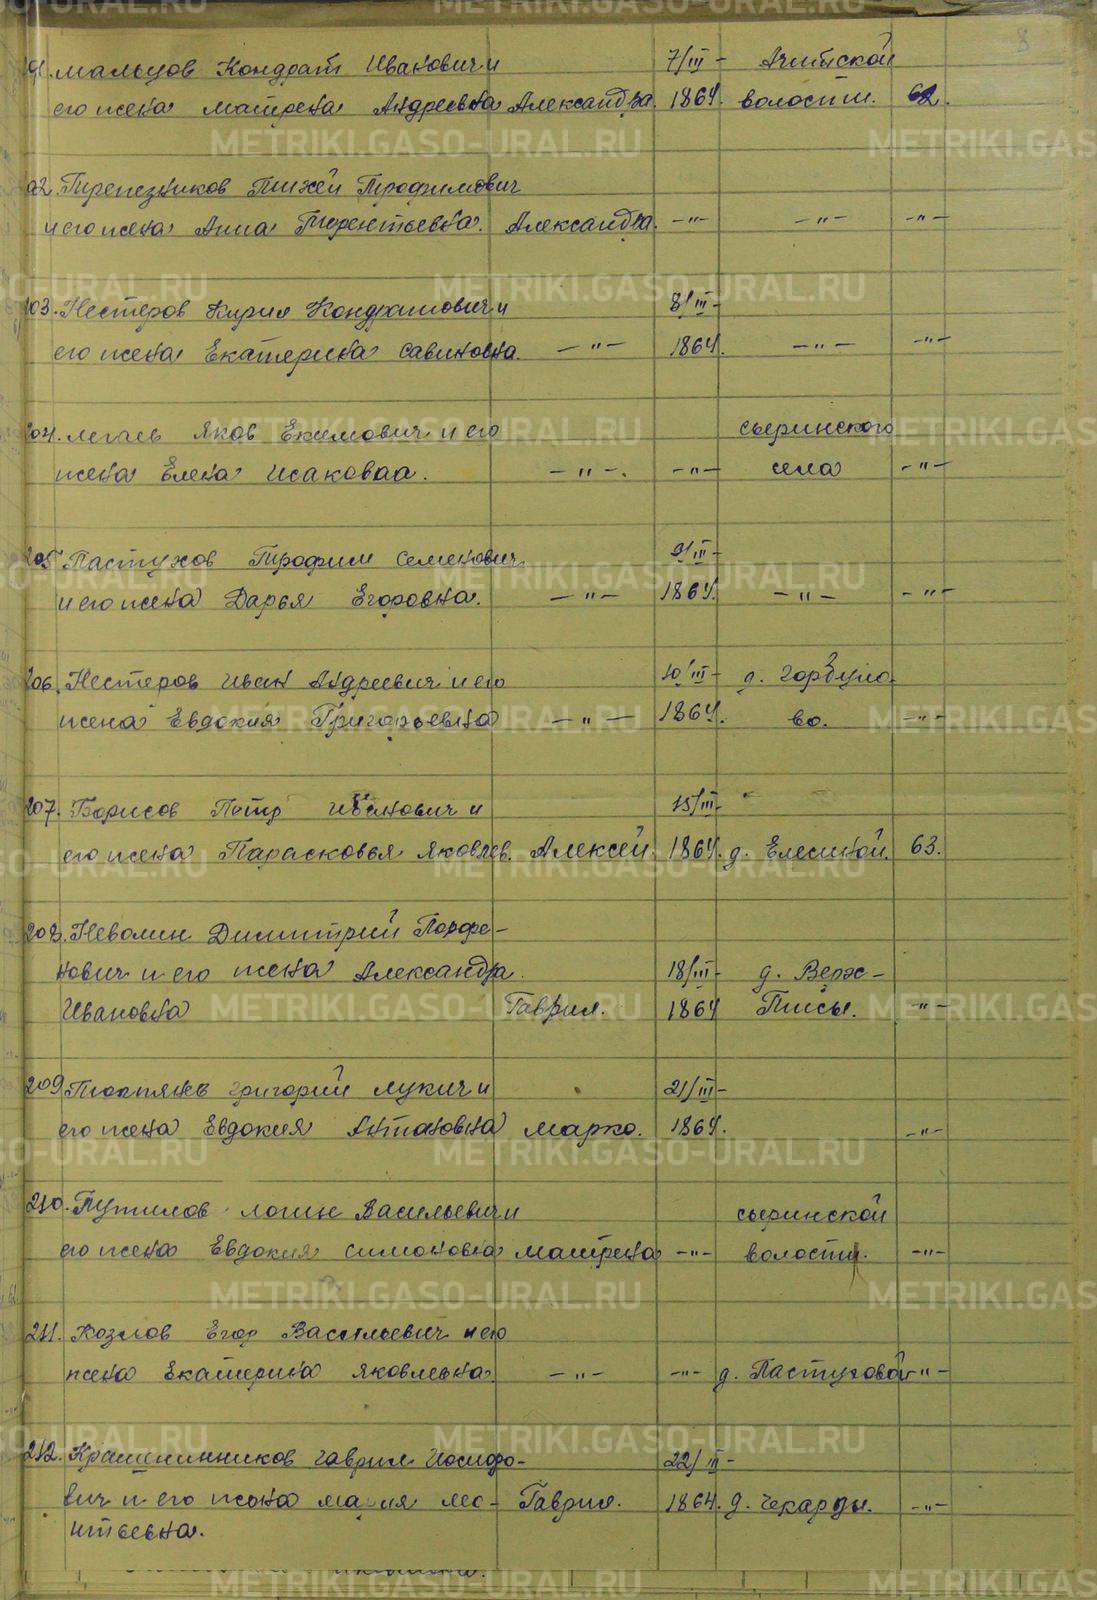 8
201. Мальцов Кондрат Иванович и 7/III- Ачитской
его жена Матрена Андреевна Александра. 1864. волости. 62.
202. Трепезников Тихей Трофимович
и его жена Анна Терентьевна. Александра. -"- -"- -"-
203. Нестеров Кирил Кондратович и 8/III-
его жена Екатерина Савиновна. -"- 1864. -"- -"-
204. Легаев Яков Екимович и его сыринского
жена Елена Исаковаа. -"-. -"- села -"-
205 Пастухов Трофим Семенович 9/III-
и его жена Дарья Егоровна. -"- 1864. -"- -"-
206. Нестеров Иван Андреевич и его 10/III- д. Горбуно-
жена Евдокия Григорьевна -"- 1864. во. -"-
207. Борисов Петр Иванович и 15/III-
его жена Парасковья Яковлев. Алексей. 1864. д. Елесиной. 63.
208. Неволин Димитрий Парфе-
нович и его жена Александра 18/III- д. Верх-
Ивановна Гаврил. 1864 Тисы. -"-
209 Григорий Лукич и 21/III-
его жена Евдокия Антоновна Марко. 1864. -"-
210. Путилов Логин Васильевич и сыринской
его жена Евдокия Симоновна Матрена -"- волости. -"-
211. Козлов Егор Васильевич и его
жена Екатерина Яковлевна. -"- -"- д. Пастуховой -"-
212. Крашенинников Гаврил Иосифо- 22/III-
вич и его жена Мария Ле- Гаврил. 1864. д. Чекарды. -"-
нтьевна.
METRIKI.GASO-URAL.RU